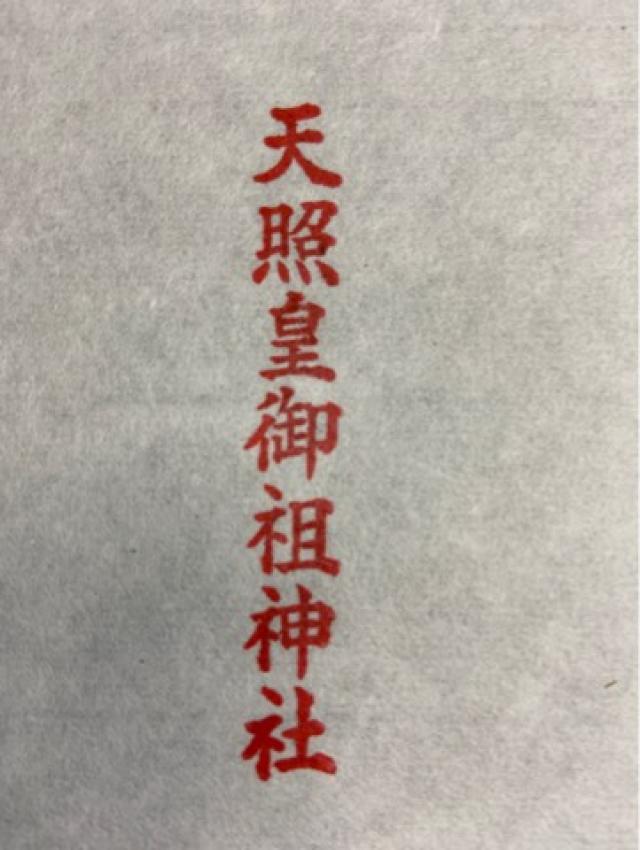 天照皇御祖神社